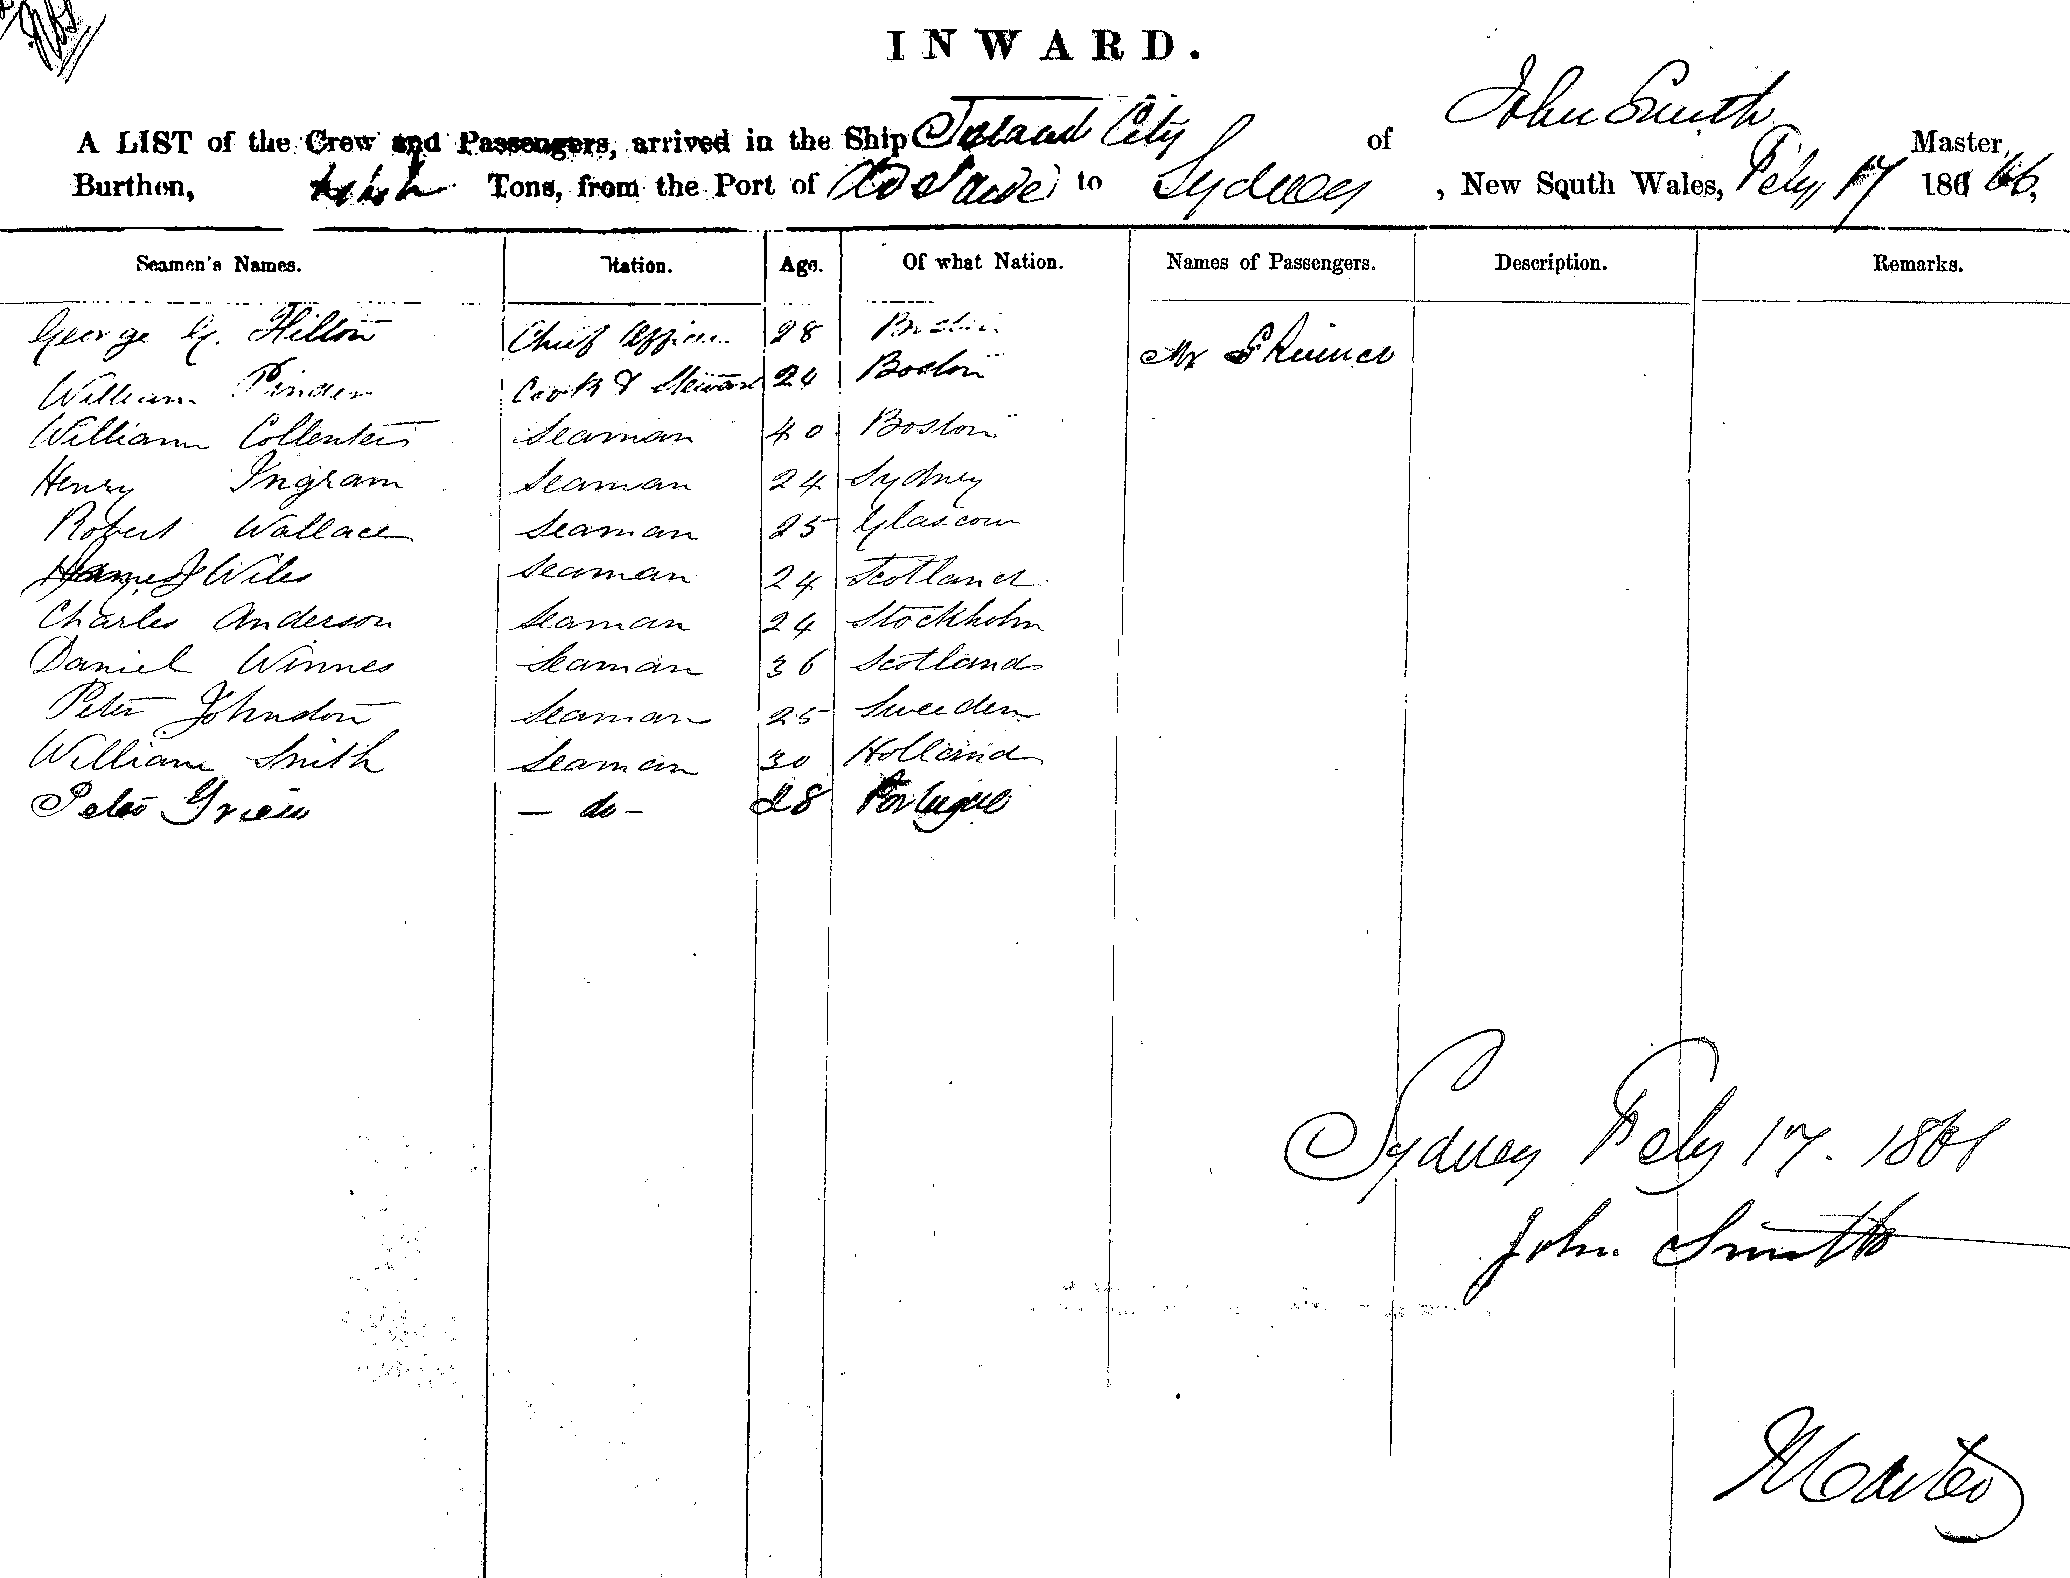 INWARD.
John Smith
A LIST of the Crew and Passengers, arrived in the Ship Island City of Master,
Burthen, Tons, from the Port of Adelaide to Sydney, New South Wales, Feby 17 186
Seamen's Names. Station. Age. Of what Nation. Names of Passengers. Description. Remarks.
George G. Hilton Chief Officer 28 Boston Mr Skinner
William Pinder Cook & Steward 24 Boston
William Seaman 40 Boston
Henry Ingram Seaman 24 Sydney
Robert Wallace Seaman 25 Glascow
Wiles Seaman 24 Scotland
Charles Anderson Seaman 24 Stockholm
Daniel Winnes Seaman 36 Scotland
Peter Johnston Seaman 25 Sweeden
William Smith Seaman 30 Holland
Peter — do — 28
Sydney Feby 17. 1861
John Smith
Master